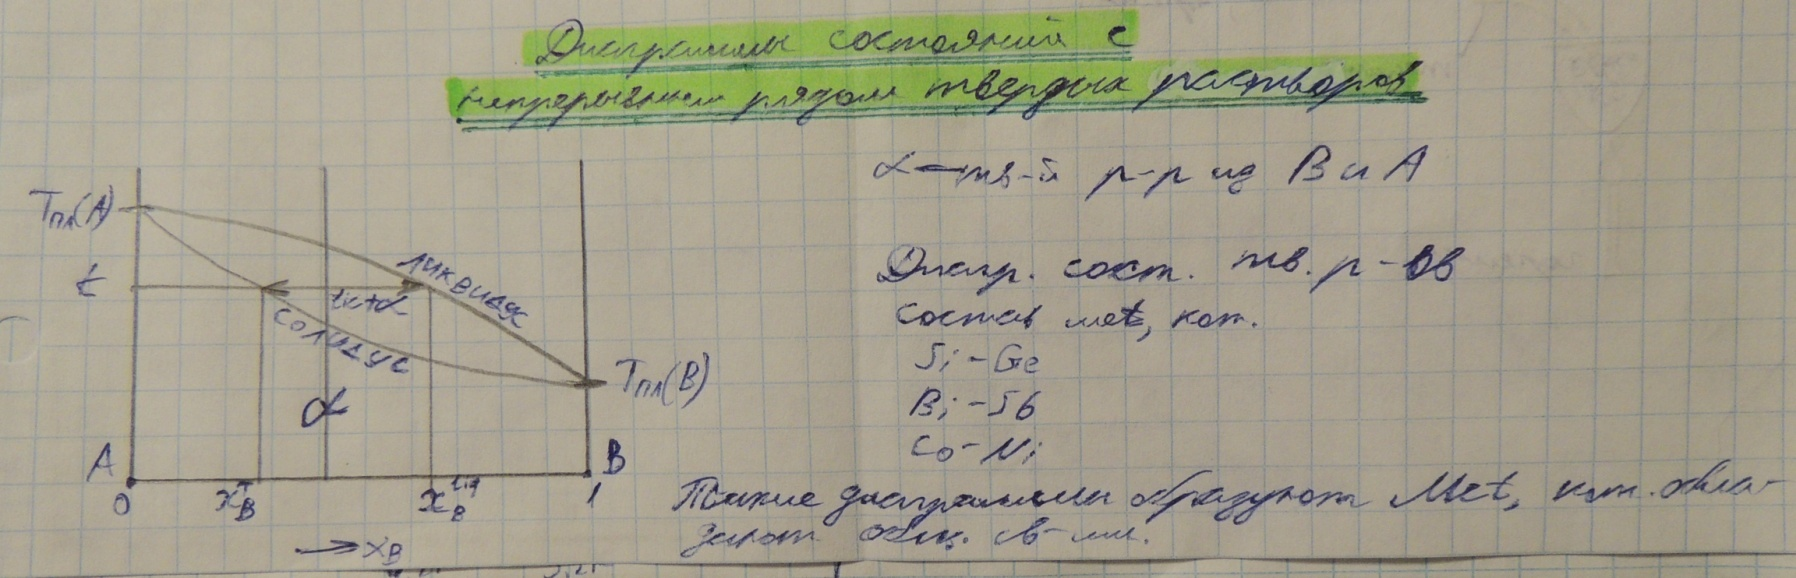 Диаграммы состояний с
непрерывным рядом твердых растворов
α – тв-й р-р из В и А
Tпл(A)
t
ликвидус
ж+α
солидус
Tпл(B)
α
A
B
0
xᵀB
xˡⁱqB
1
→ xB
Диагр. сост. тв. р-ов
состав met, кот.
Si - Ge
Bi - Sb
Co - Ni
Такие диаграммы образуют Met, кот. обла-
дают общ. св-ми.